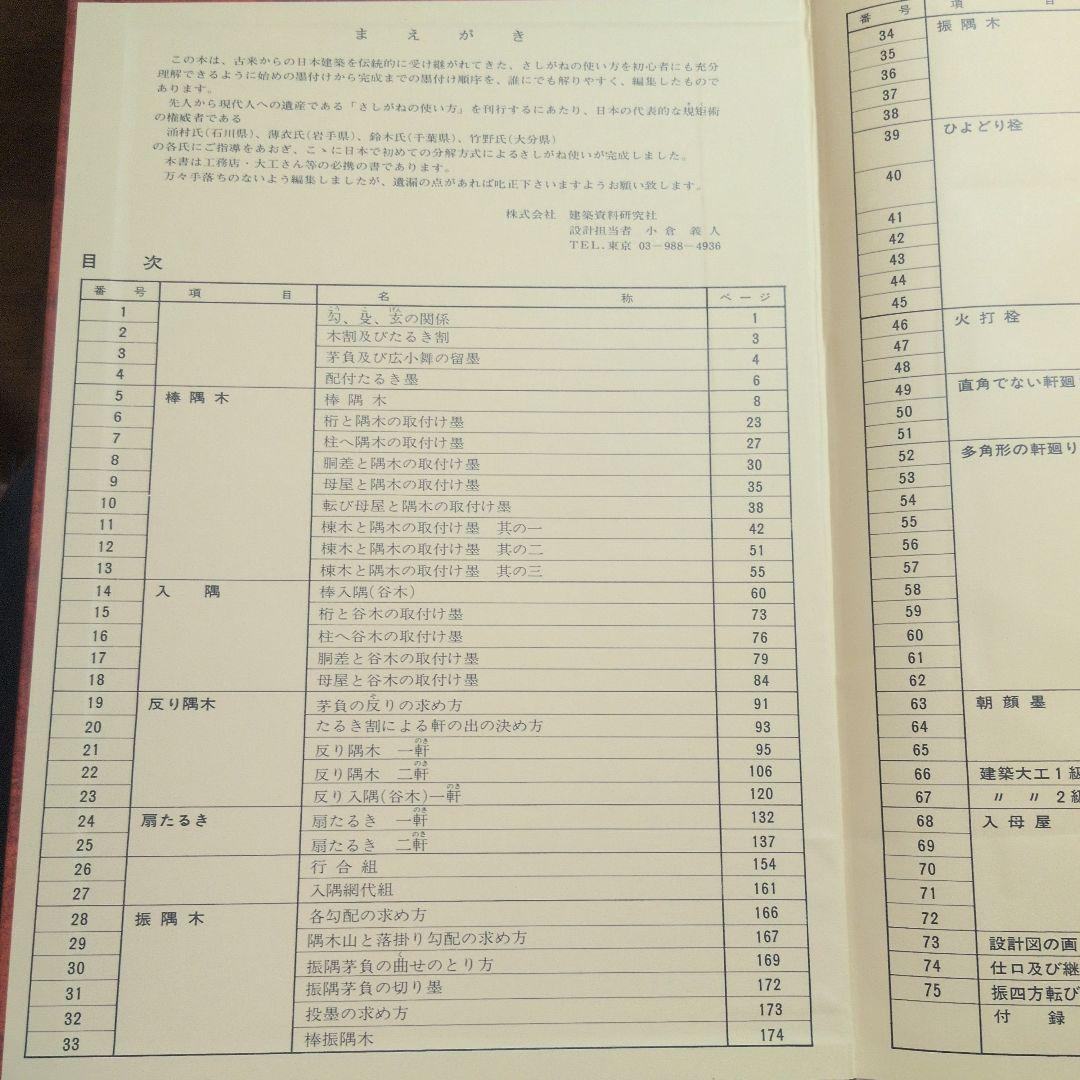 まえがき
この本は、古来からの日本建築を伝統的に受け継がれてきた、さしがねの使い方を初心者にも充分
理解できるように始めの墨付けから完成までの墨付け順序を、誰にでも解りやすく、編集したもので
あります。
先人から現代人への遺産である「さしがねの使い方」を刊行するにあたり、日本の代表的な規矩術
の権威者である
涌村氏(石川県)、薄衣氏(岩手県)、鈴木氏(千葉県)、竹野氏(大分県)
の各氏にご指導をあおぎ、こゝに日本で初めての分解方式によるさしがね使いが完成しました。
本書は工務店・大工さん等の必携の書であります。
万々手落ちのないよう編集しましたが、遺漏の点があれば叱正下さいますようお願い致します。
株式会社 建築資料研究社
設計担当者 小倉義人
TEL.東京 03-988-4936
目 次
番号 項目 名称 ページ
1 勾、殳、玄の関係 1
2 木割及びたるき割 3
3 茅負及び広小舞の留墨 4
4 配付たるき墨 6
5 棒隅木 棒隅木 8
6 桁と隅木の取付け墨 23
7 柱へ隅木の取付け墨 27
8 胴差と隅木の取付け墨 30
9 母屋と隅木の取付け墨 35
10 転び母屋と隅木の取付け墨 38
11 棟木と隅木の取付け墨 其の一 42
12 棟木と隅木の取付け墨 其の二 51
13 棟木と隅木の取付け墨 其の三 55
14 入隅 棒入隅(谷木) 60
15 桁と谷木の取付け墨 73
16 柱へ谷木の取付け墨 76
17 胴差と谷木の取付け墨 79
18 母屋と谷木の取付け墨 84
19 反り隅木 茅負の反りの求め方 91
20 たるき割による軒の出の決め方 93
21 反り隅木 一軒 95
22 反り隅木 二軒 106
23 反り入隅(谷木)一軒 120
24 扇たるき 扇たるき 一軒 132
25 扇たるき 二軒 137
26 行合組 154
27 入隅網代組 161
28 振隅木 各勾配の求め方 166
29 隅木山と落掛り勾配の求め方 167
30 振隅茅負の曲せのとり方 169
31 振隅茅負の切り墨 172
32 投墨の求め方 173
33 棒振隅木 174
番号 項目
34 振隅木
35
36
37
38
39 ひよどり栓
40
41
42
43
44
45
46 火打栓
47
48
49 直角でない軒廻
50
51
52 多角形の軒廻り
53
54
55
56
57
58
59
60
61
62
63 朝顔墨
64
65
66 建築大工1級
67 〃 〃 2級
68 入母屋
69
70
71
72
73 設計図の画
74 仕口及び継
75 振四方転び
付録